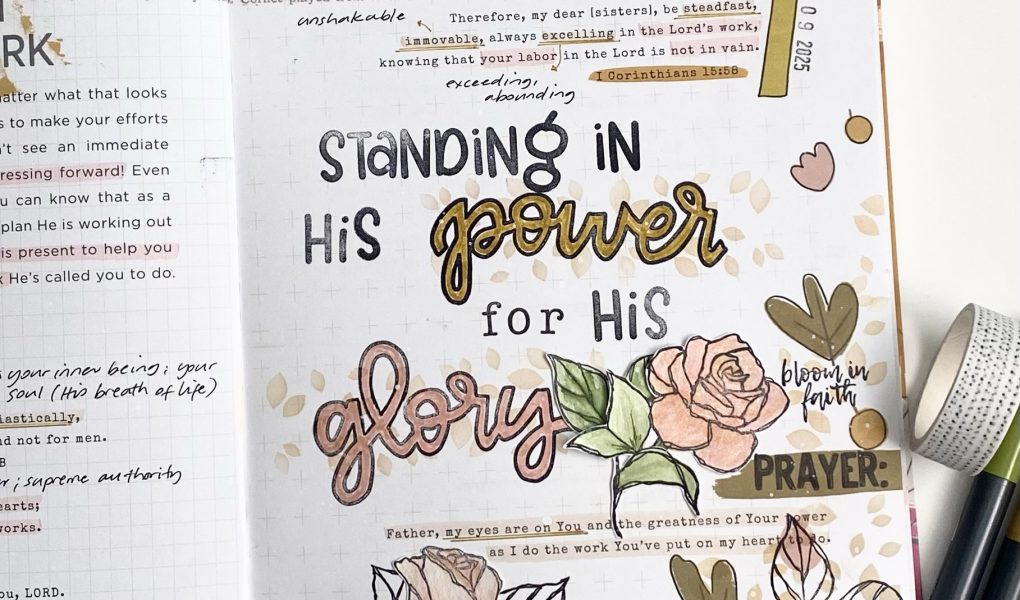 RK
matter what that looks
s to make your efforts
n't see an immediate
ressing forward! Even
u can know that as a
plan He is working out
is present to help you
He's called you to do.
your inner being; your
soul (His breath of life)
iastically,
nd not for men.
B
r; supreme authority
earts;
works.
ou, LORD.
unshakable
Therefore, my dear [sisters], be steadfast,
immovable, always excelling in the Lord's work,
knowing that your labor in the Lord is not in vain.
I Corinthians 15:58
exceeding,
abounding
09 2025
STANDING IN
HiS power
for HiS
glory
bloom in
faith
PRAYER:
Father, my eyes are on You and the greatness of Your power
as I do the work You've put on my heart to do.